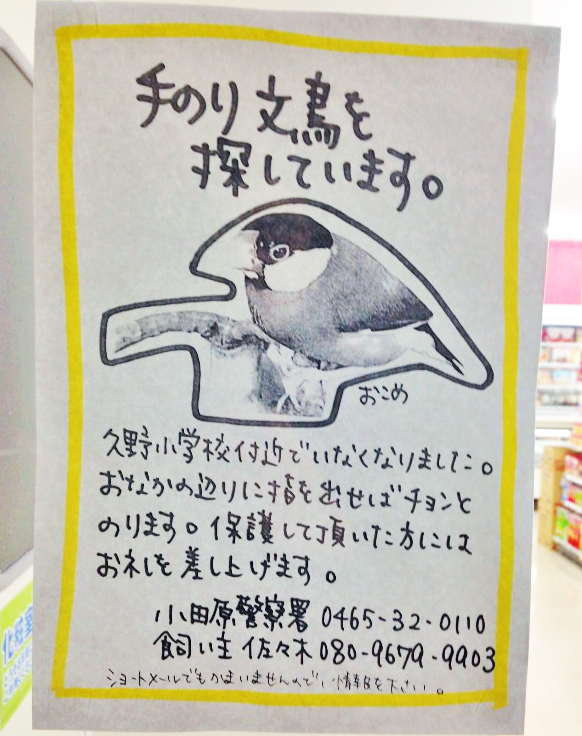 手のり文鳥を
探しています。
おこめ
久野小学校付近でいなくなりました。
おなかの辺りに指を出せばチョンと
のります。保護して頂いた方には
お礼を差し上げます。
小田原警察署 0465-32-0110
飼い主 佐々木 080-9679-9903
ショートメールでもかまいませんので、情報を下さい。
化粧室